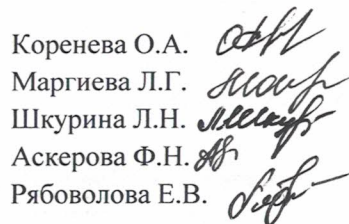 Коренева О.А.
Маргиева Л.Г.
Шкурина Л.Н.
Аскерова Ф.Н.
Рябоволова Е.В.